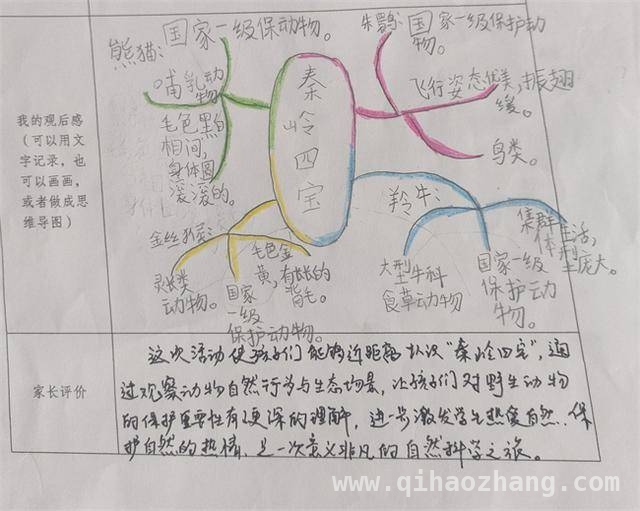 我的观后感
（可以用文
字记录，也
可以画画，
或者做成思
维导图）
秦岭四宝
熊猫：
国家一级保动物。
哺乳动
物。
毛色黑白
相间，
身体圆
滚滚的。
朱鹮：
国家一级保护动
物。
飞行姿态优美，振翅
缓。
鸟类。
金丝猴：
灵长类
动物。
国家
一级
保护动物。
毛色金
黄，有长长的
背毛。
羚牛：
大型牛科
食草动物
国家一级
保护动
物。
集群生活，
体型
庞大。
家长评价
这次活动使孩子们能够近距离认识“秦岭四宝”，通
过观察动物自然行为与生态场景，让孩子们对野生动物
的保护重要性有了更深的理解，进步激发学生热爱自然、保
护自然的热情，是一次意义非凡的自然科学之旅。
www.qihaozhang.com